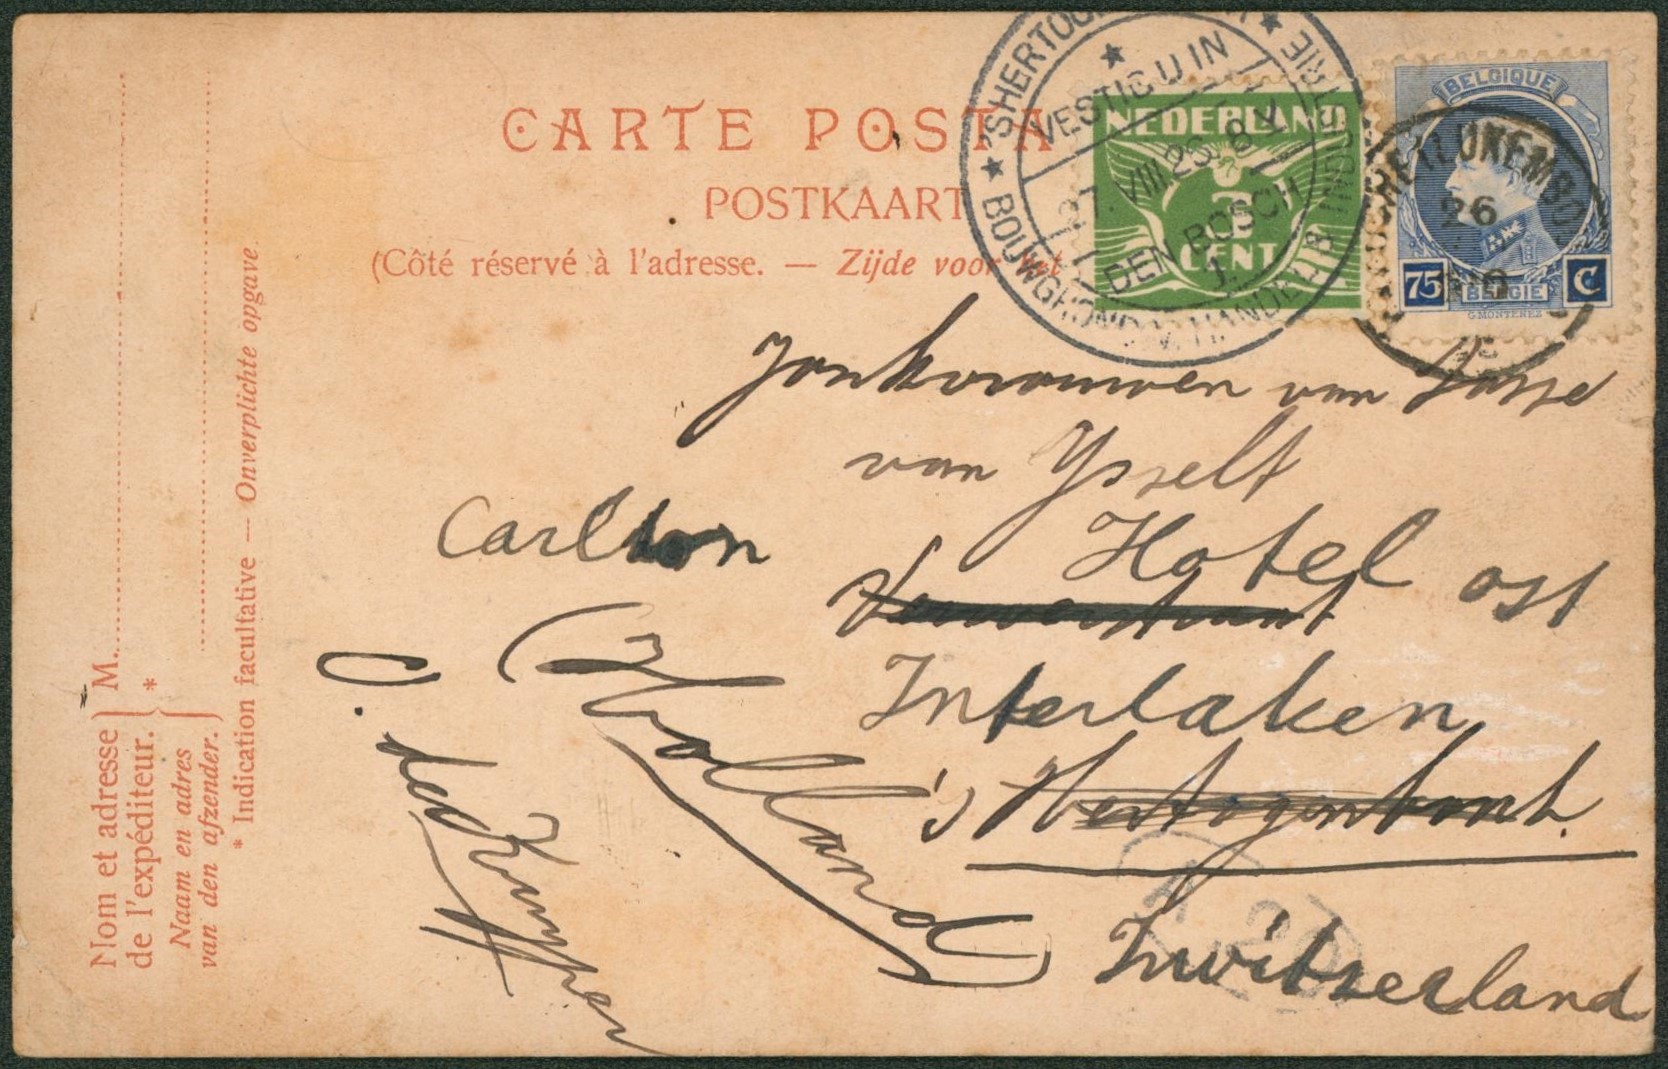 CARTE POSTA
POSTKAART
(Côté réservé à l'adresse. — Zijde voor het
'SHERTO
VESTIG U IN
27. VIII 25. 8 V
DEN BOSCH
1.
BOUWGROND
HANDEL
INDUSTRIE
NEDERLAND
3
CENT
BELGIQUE
75 BELGIE C
G.MONTENEZ
LUXEMBO
26
Jonkvrouwen van Sasse
van Ysselt
Carlton Hotel ost
Interlaken
's Hertogenbosch.
(Holland)
Zwitserland
C. de Kuyper
Nom et adresse
de l'expéditeur. M.
Naam en adres *
van den afzender.
* Indication facultative — Onverplichte opgave.